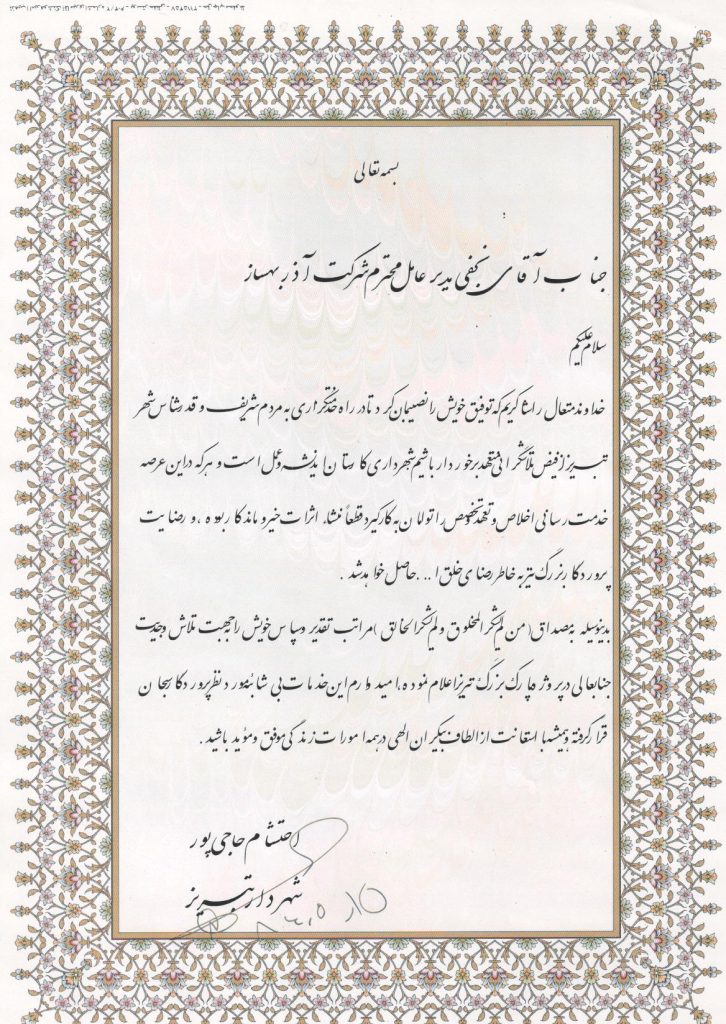 بسمه تعالی
جناب آقای نجفی مدیر عامل محترم شرکت آذر بهساز
سلام علیکم
خداوند متعال را شاکریم که توفیق خویش را نصیبمان کرد تا در راه خدمتگزاری به مردم شریف و قدرشناس شهر
تبریز از فیض تلاشگرانی متعهد برخوردار باشیم شهرداری کارستان اندیشه و عمل است و هر که در این عرصه
خدمت رسانی اخلاص و تعهد و تخصص را توامان به کار گیرد قطعاً منشاء اثرات خیر و ماندگار بوده ، و رضایت
پروردگار بزرگ نیز به خاطر رضای خلق ا... حاصل خواهد شد .
بدینوسیله به مصداق (من لم یشکر المخلوق و لم یشکر الخالق ) مراتب تقدیر و سپاس خویش را جهت تلاش و جدیت
جنابعالی در پروژه پارک بزرگ تبریز اعلام نموده، امیدوارم این خدمات بی شائبه مورد نظر پروردگار سبحان
قرار گرفته و همیشه با استعانت از الطاف بیکران الهی در همه امورات زندگی موفق و موید باشید .
احتشام حاجی پور
شهردار تبریز